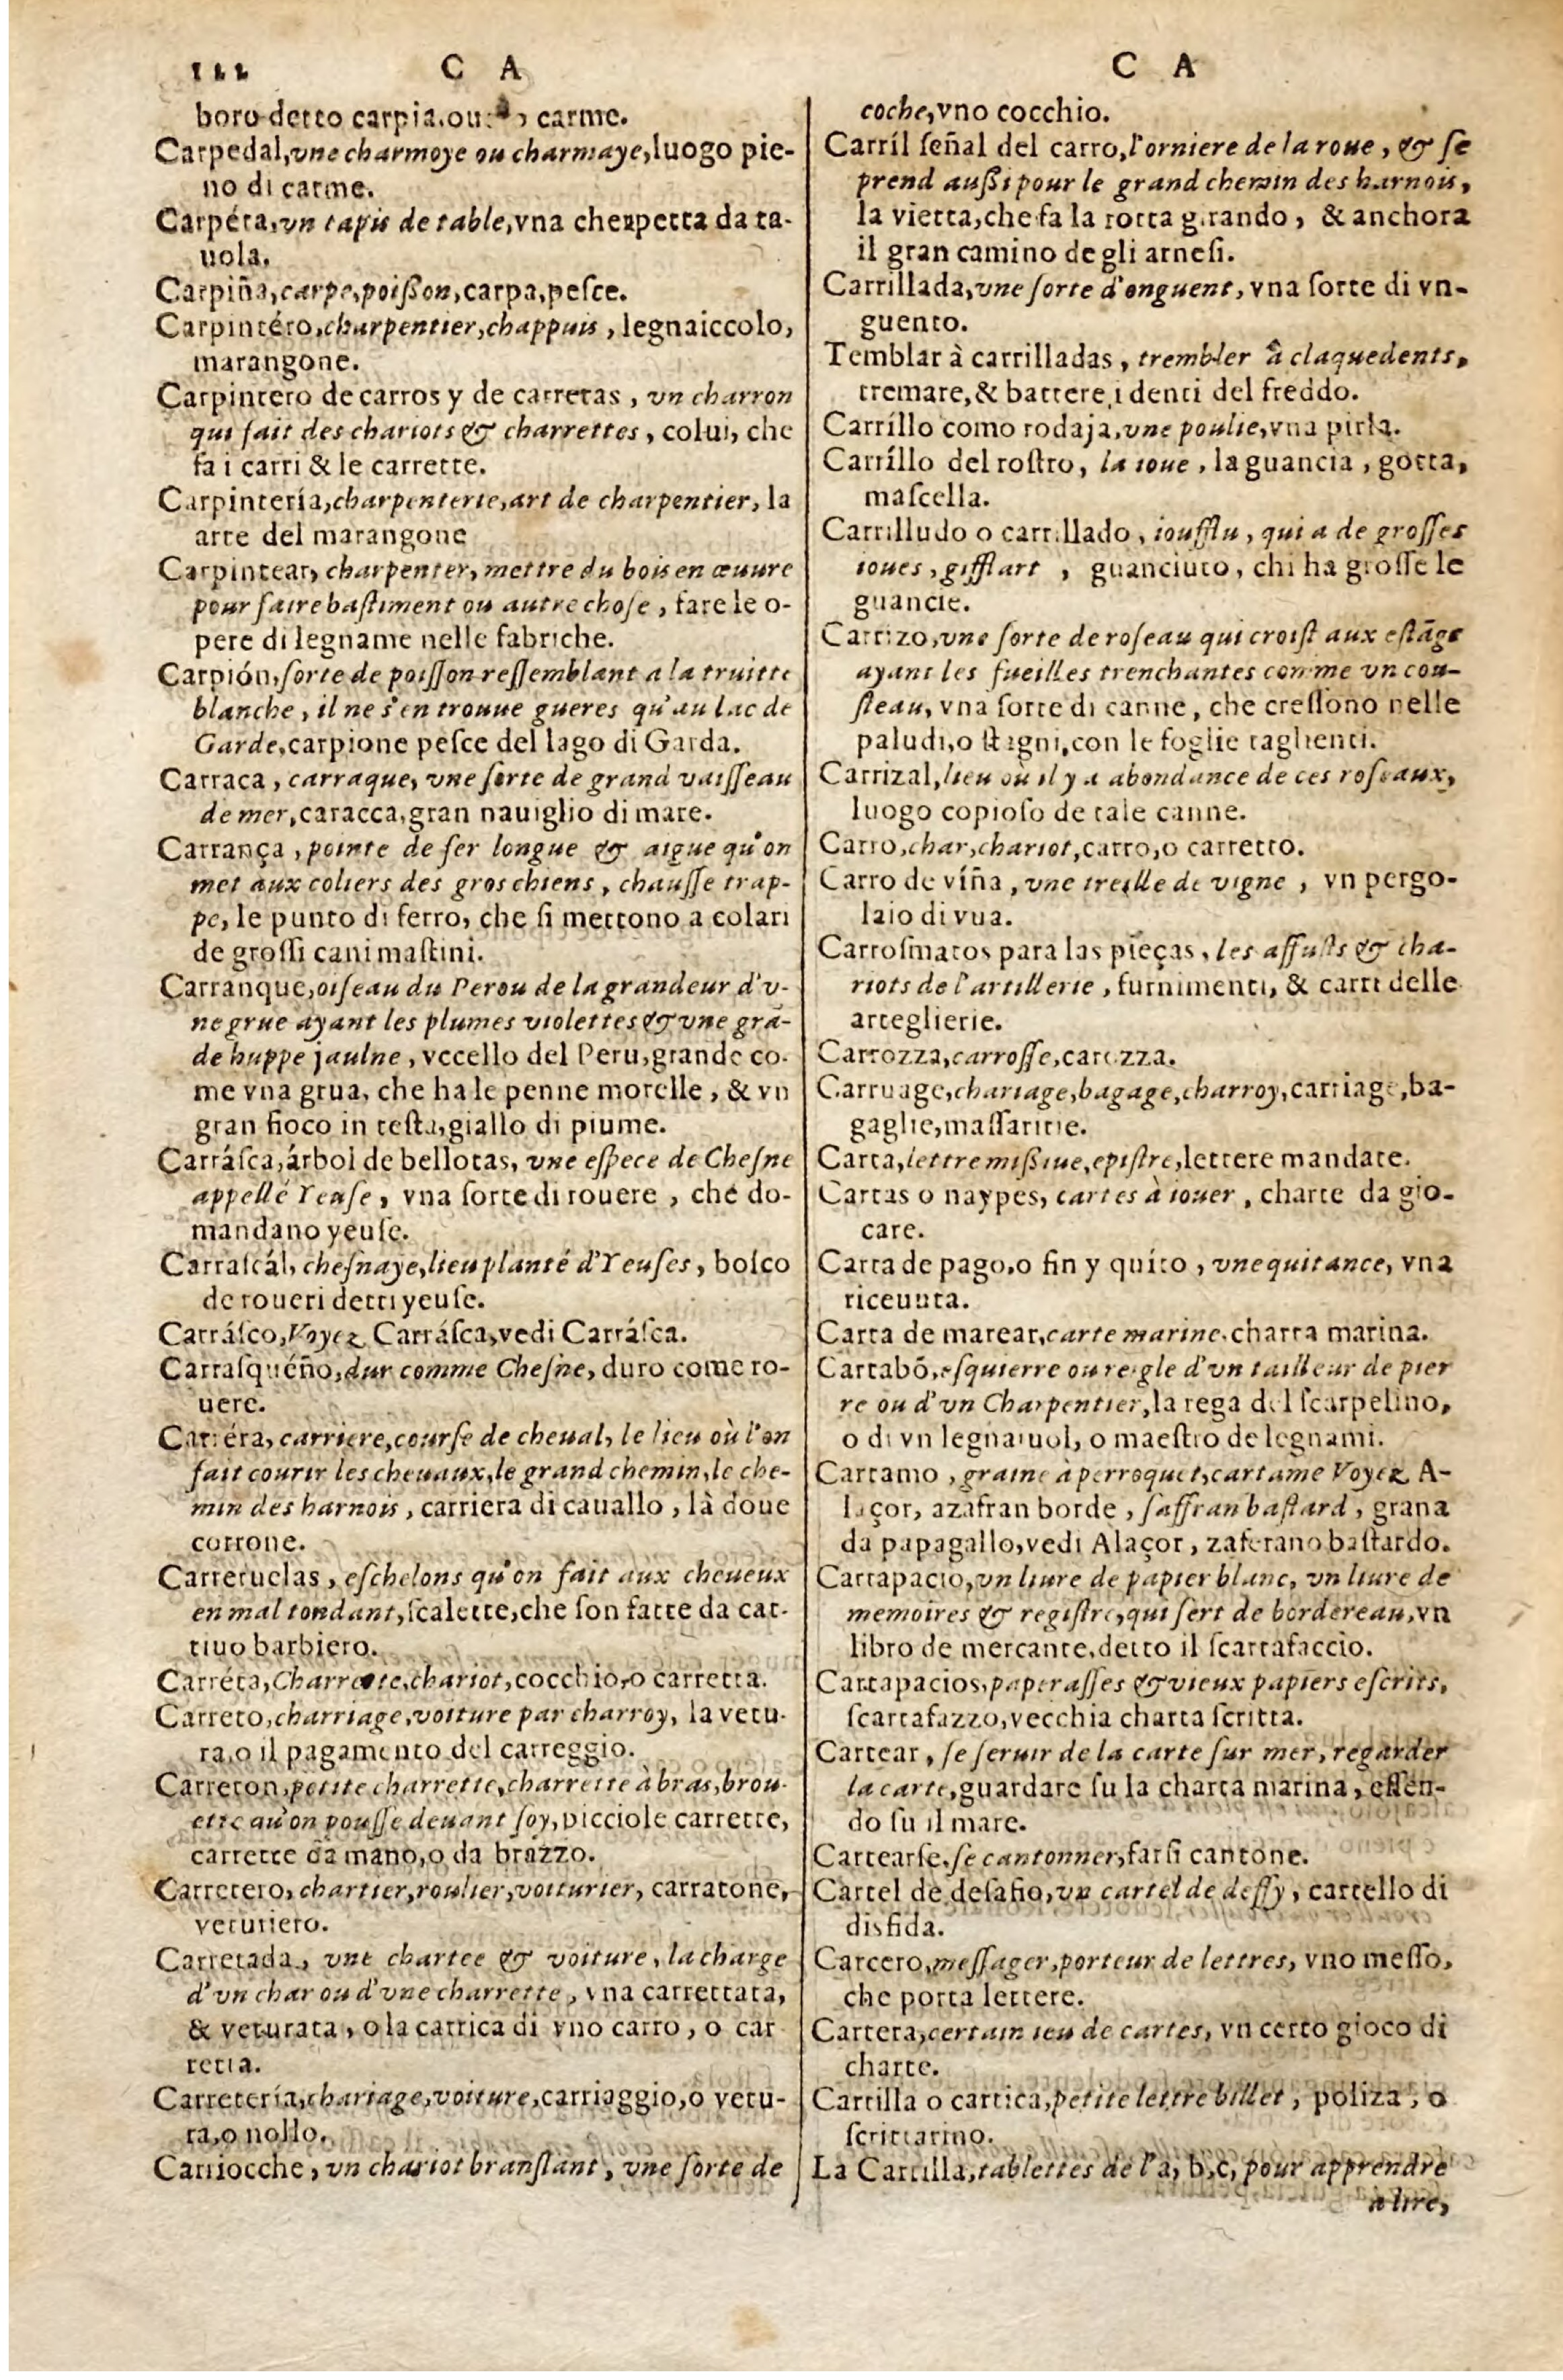 122 C A
boro detto carpia, ou , carme.
Carpedal, vne charmoye ou charmaye, luogo pie-
no di carme.
Carpéta, vn tapis de table, vna che petta da ta-
uola.
Carpiña, carpe, poißon, carpa, pesce.
Carpintéro, charpentier, chappuis, legnaiccolo,
marangone.
Carpintero de carros y de carretas, vn charron
qui fait des chariots & charrettes, colui, che
fa i carri & le carrette.
Carpintería, charpenterie, art de charpentier, la
arte del marangone
Carpintear, charpenter, mettre du bois en œuure
pour faire bastiment ou autre chose, fare le o-
pere di legname nelle fabriche.
Carpión, sorte de poisson ressemblant a la truitte
blanche, il ne s'en trouue gueres qu'au lac de
Garde, carpione pesce del lago di Garda.
Carraca, carraque, vne sorte de grand vaisseau
de mer, caracca, gran nauiglio di mare.
Carrança, pointe de fer longue & aigue qu'on
met aux coliers des gros chiens, chausse trap-
pe, le punto di ferro, che si mettono a colari
de grossi cani mastini.
Carranque, oiseau du Perou de la grandeur d'v-
ne grue ayant les plumes violettes & vne grã-
de huppe jaulne, vccello del Peru, grande co-
me vna grua, che ha le penne morelle, & vn
gran fioco in testa, giallo di piume.
Carrásca, árbol de bellotas, vne espece de Chesne
appellé Yeuse, vna sorte di rouere, che do-
mandano yeuse.
Carrascál, chesnaye, lieu planté d'Yeuses, bosco
de roueri detti yeuse.
Carrásco, Voyez Carrásca, vedi Carrásca.
Carrasquéño, dur comme Chesne, duro come ro-
uere.
Carréra, carriere, course de cheual, le lieu où l'on
fait courir les cheuaux, le grand chemin, le che-
min des harnois, carriera di cauallo, là doue
corrone.
Carreruelas, eschelons qu'on fait aux cheueux
en mal tondant, scalette, che son fatte da cat-
tiuo barbiero.
Carréta, Charrete, chariot, cocchio, o carretta.
Carreto, charriage, voiture par charroy, la vetu-
ra, o il pagamento del carreggio.
Carreton, petite charrette, charrette à bras, brou-
ette qu'on pousse deuant soy, picciole carrette,
carrette da mano, o da brazzo.
Carretero, chartier, roulier, voiturier, carratone,
veturiero.
Carretada, vne chartee & voiture, la charge
d'vn char ou d'vne charrette, vna carrettata,
& veturata, o la carrica di vno carro, o car
retta.
Carretería, chariage, voiture, carriaggio, o vetu-
ra, o nollo.
Carriocche, vn chariot branslant, vne sorte de
C A
coche, vno cocchio.
Carríl señal del carro, l'orniere de la roue, & se
prend außi pour le grand chemin des harnois,
la vietta, che fa la rotta girando, & anchora
il gran camino de gli arnesi.
Carrillada, vne sorte d'onguent, vna sorte di vn-
guento.
Temblar à carrilladas, trembler à claquedents,
tremare, & battere i denti del freddo.
Carríllo como rodaja, vne poulie, vna pirla.
Carríllo del rostro, la ioue, la guancia, gotta,
mascella.
Carrilludo o carrillado, ioufflu, qui a de grosses
ioues, gifflart, guanciuto, chi ha grosse le
guancie.
Carrizo, vne sorte de roseau qui croist aux estãgs
ayant les fueilles trenchantes comme vn cou-
steau, vna sorte di canne, che cressono nelle
paludi, o stagni, con le foglie taglienti.
Carrizal, lieu où il y a abondance de ces roseaux,
luogo copioso de tale canne.
Carro, char, chariot, carro, o carretto.
Carro de víña, vne treille de vigne, vn pergo-
laio di vua.
Carrosmatos para las pieças, les affusts & cha-
riots de l'artillerie, furnimenti, & carri delle
arteglierie.
Carrozza, carrosse, carozza.
Carruage, chariage, bagage, charroy, carriage, ba-
gaglie, massaritie.
Carta, lettre mißiue, epistre, lettere mandate.
Cartas o naypes, cartes à iouer, charte da gio-
care.
Carta de pago, o fin y quíto, vne quitance, vna
riceuuta.
Carta de marear, carte marine, charta marina.
Cartabõ, esquierre ou reigle d'vn tailleur de pier
re ou d'vn Charpentier, la rega del scarpelino,
o di vn legnaiuol, o maestro de legnami.
Cartamo, graine à perroquet, cartame Voyez A-
laçor, azafran borde, saffran bastard, grana
da papagallo, vedi Alaçor, zaferano bastardo.
Cartapacio, vn liure de papier blanc, vn liure de
memoires & registre, qui sert de bordereau, vn
libro de mercante, detto il scartafaccio.
Cartapacios, paperasses & vieux papiers escrits,
scartafazzo, vecchia charta scritta.
Cartear, se seruir de la carte sur mer, regarder
la carte, guardare su la charta marina, essen-
do su il mare.
Cartearse, se cantonner, farsi cantone.
Cartel de desafio, vn cartel de deffy, cartello di
disfida.
Cartero, messager, porteur de lettres, vno messo,
che porta lettere.
Cartera, certain ieu de cartes, vn certo gioco di
charte.
Cartilla o cartica, petite lettre billet, poliza, o
scrittarino.
La Cartilla, tablettes de l'a, b, c, pour apprendre
a lire,